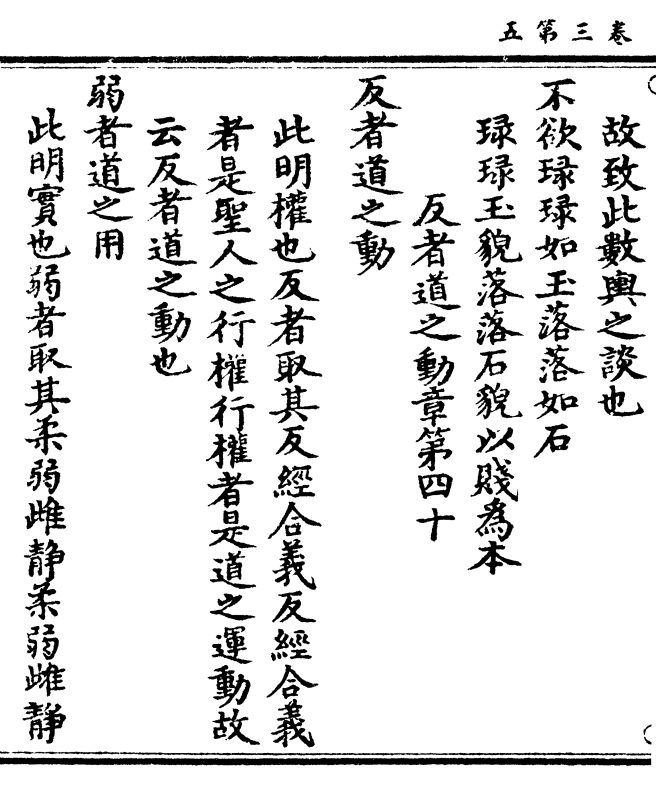 卷三第五
故致此數輿之談也
不欲琭琭如玉落落如石
琭琭玉貌落落石貌以賤為本
反者道之動章第四十
反者道之動
此明權也反者取其反經合義反經合義
者是聖人之行權行權者是道之運動故
云反者道之動也
弱者道之用
此明實也弱者取其柔弱雌静柔弱雌静